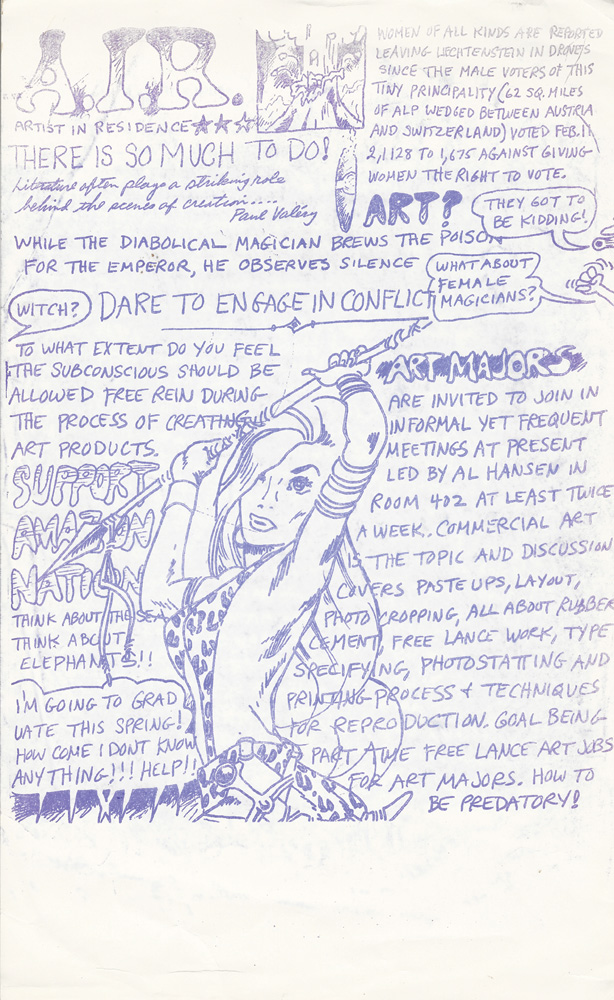 A.I.R.
ARTIST IN RESIDENCE
THERE IS SO MUCH TO DO!
Literature often plays a striking role
behind the scenes of creation....
Paul Valéry
WOMEN OF ALL KINDS ARE REPORTED
LEAVING LIECHTENSTEIN IN DROVES
SINCE THE MALE VOTERS OF THIS
TINY PRINCIPALITY (62 SQ. MILES
OF ALP WEDGED BETWEEN AUSTRIA
AND SWITZERLAND) VOTED FEB. 11
2,1128 TO 1,675 AGAINST GIVING
WOMEN THE RIGHT TO VOTE.
ART?
THEY GOT TO
BE KIDDING!
WHILE THE DIABOLICAL MAGICIAN BREWS THE POISON
FOR THE EMPEROR, HE OBSERVES SILENCE
WHAT ABOUT
FEMALE
MAGICIANS?
WITCH?
DARE TO ENGAGE IN CONFLICT
TO WHAT EXTENT DO YOU FEEL
THE SUBCONSCIOUS SHOULD BE
ALLOWED FREE REIN DURING
THE PROCESS OF CREATING
ART PRODUCTS.
SUPPORT
AMAZON
NATION
THINK ABOUT THE SEA
THINK ABOUT
ELEPHANTS!!
I'M GOING TO GRAD
UATE THIS SPRING!
HOW COME I DONT KNOW
ANYTHING!!! HELP!!
ART MAJORS
ARE INVITED TO JOIN IN
INFORMAL YET FREQUENT
MEETINGS AT PRESENT
LED BY AL HANSEN IN
ROOM 402 AT LEAST TWICE
A WEEK. COMMERCIAL ART
IS THE TOPIC AND DISCUSSION
COVERS PASTE UPS, LAYOUT,
PHOTO CROPPING, ALL ABOUT RUBBER
CEMENT, FREE LANCE WORK, TYPE
SPECIFYING, PHOTOSTATTING AND
PRINTING PROCESS + TECHNIQUES
FOR REPRODUCTION. GOAL BEING
PART TIME FREE LANCE ART JOBS
FOR ART MAJORS. HOW TO
BE PREDATORY!